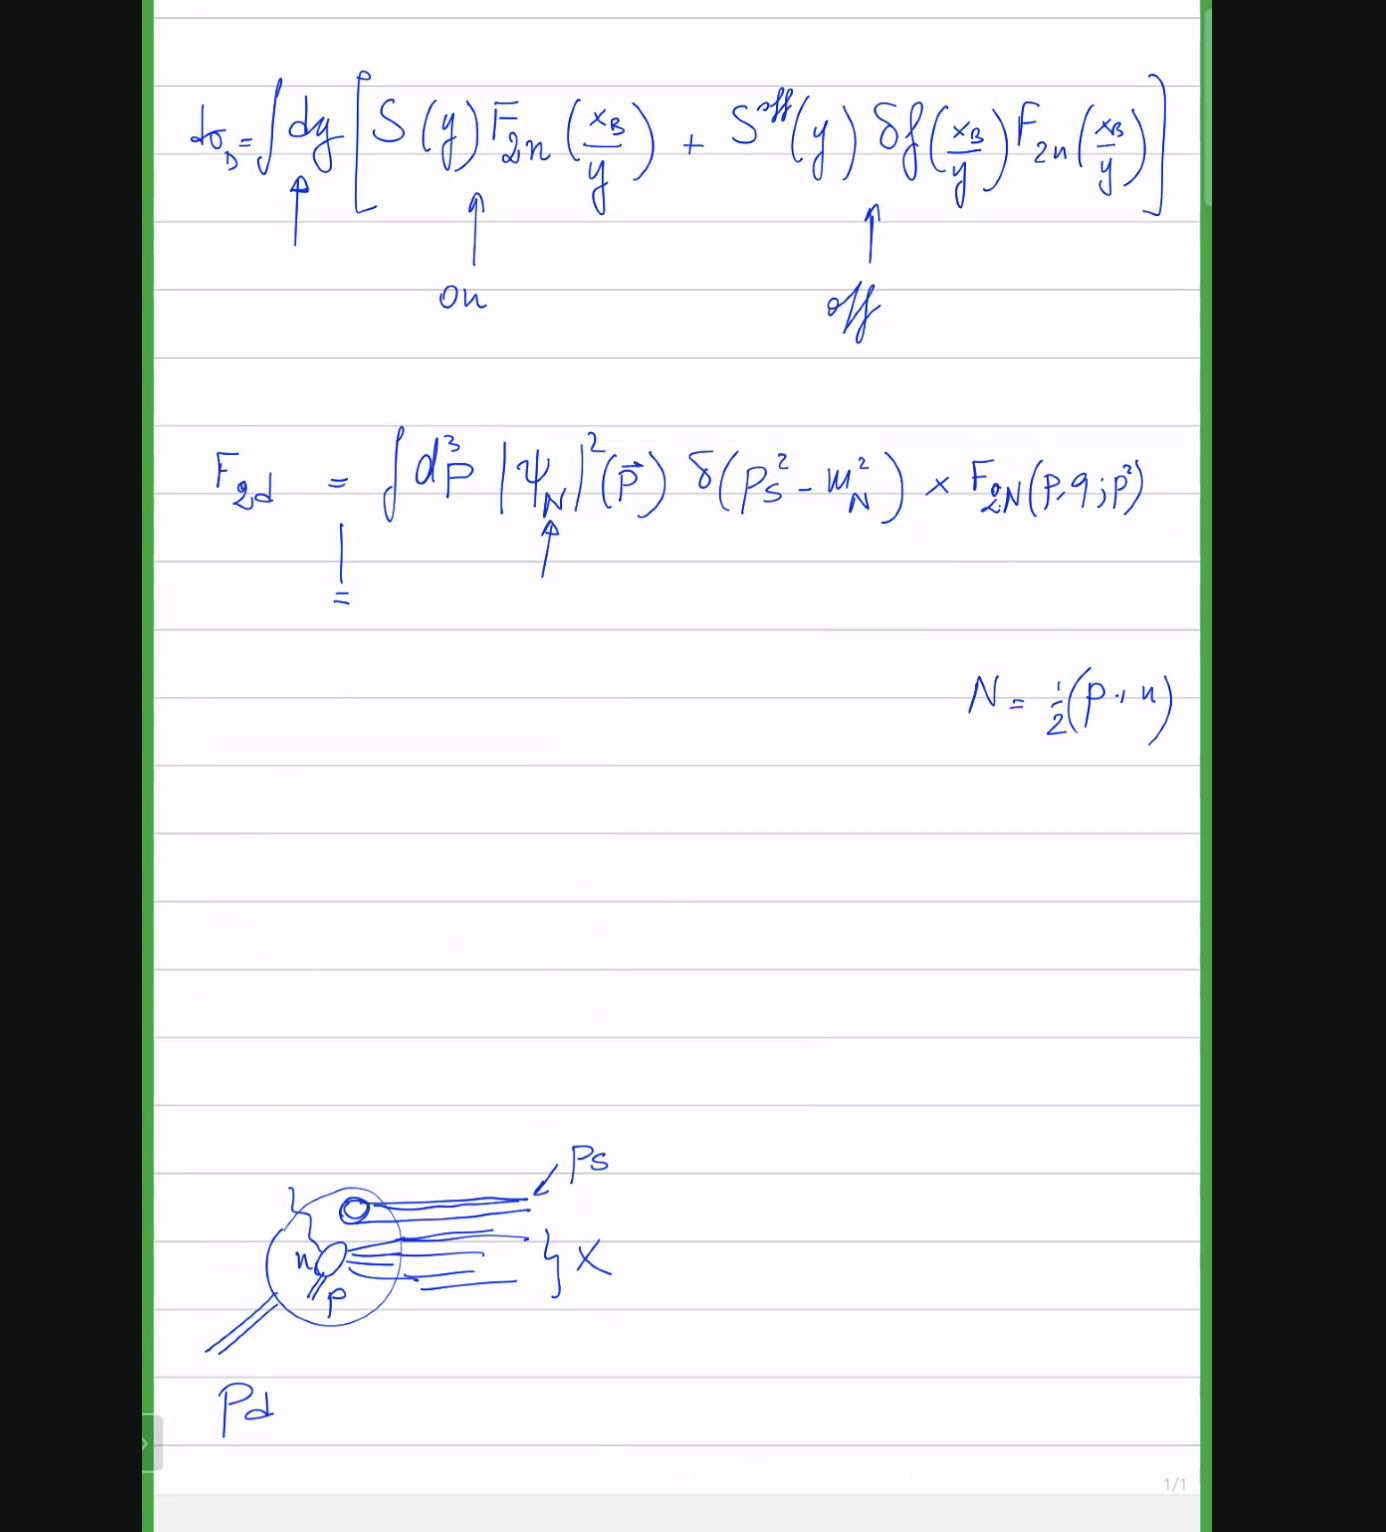 dσ_D = ∫ dy [ S(y) F_{2n}(x_B/y) + S^{off}(y) δf(x_B/y) F_{2n}(x_B/y) ]
on off
F_{2,d} = ∫ d³p |ψ_N|²(p⃗) δ(p_S² - m_N²) × F_{2N}(p,q;p²)
=
N = ½(p+n)
Ps
n } X
p
Pd
1/1